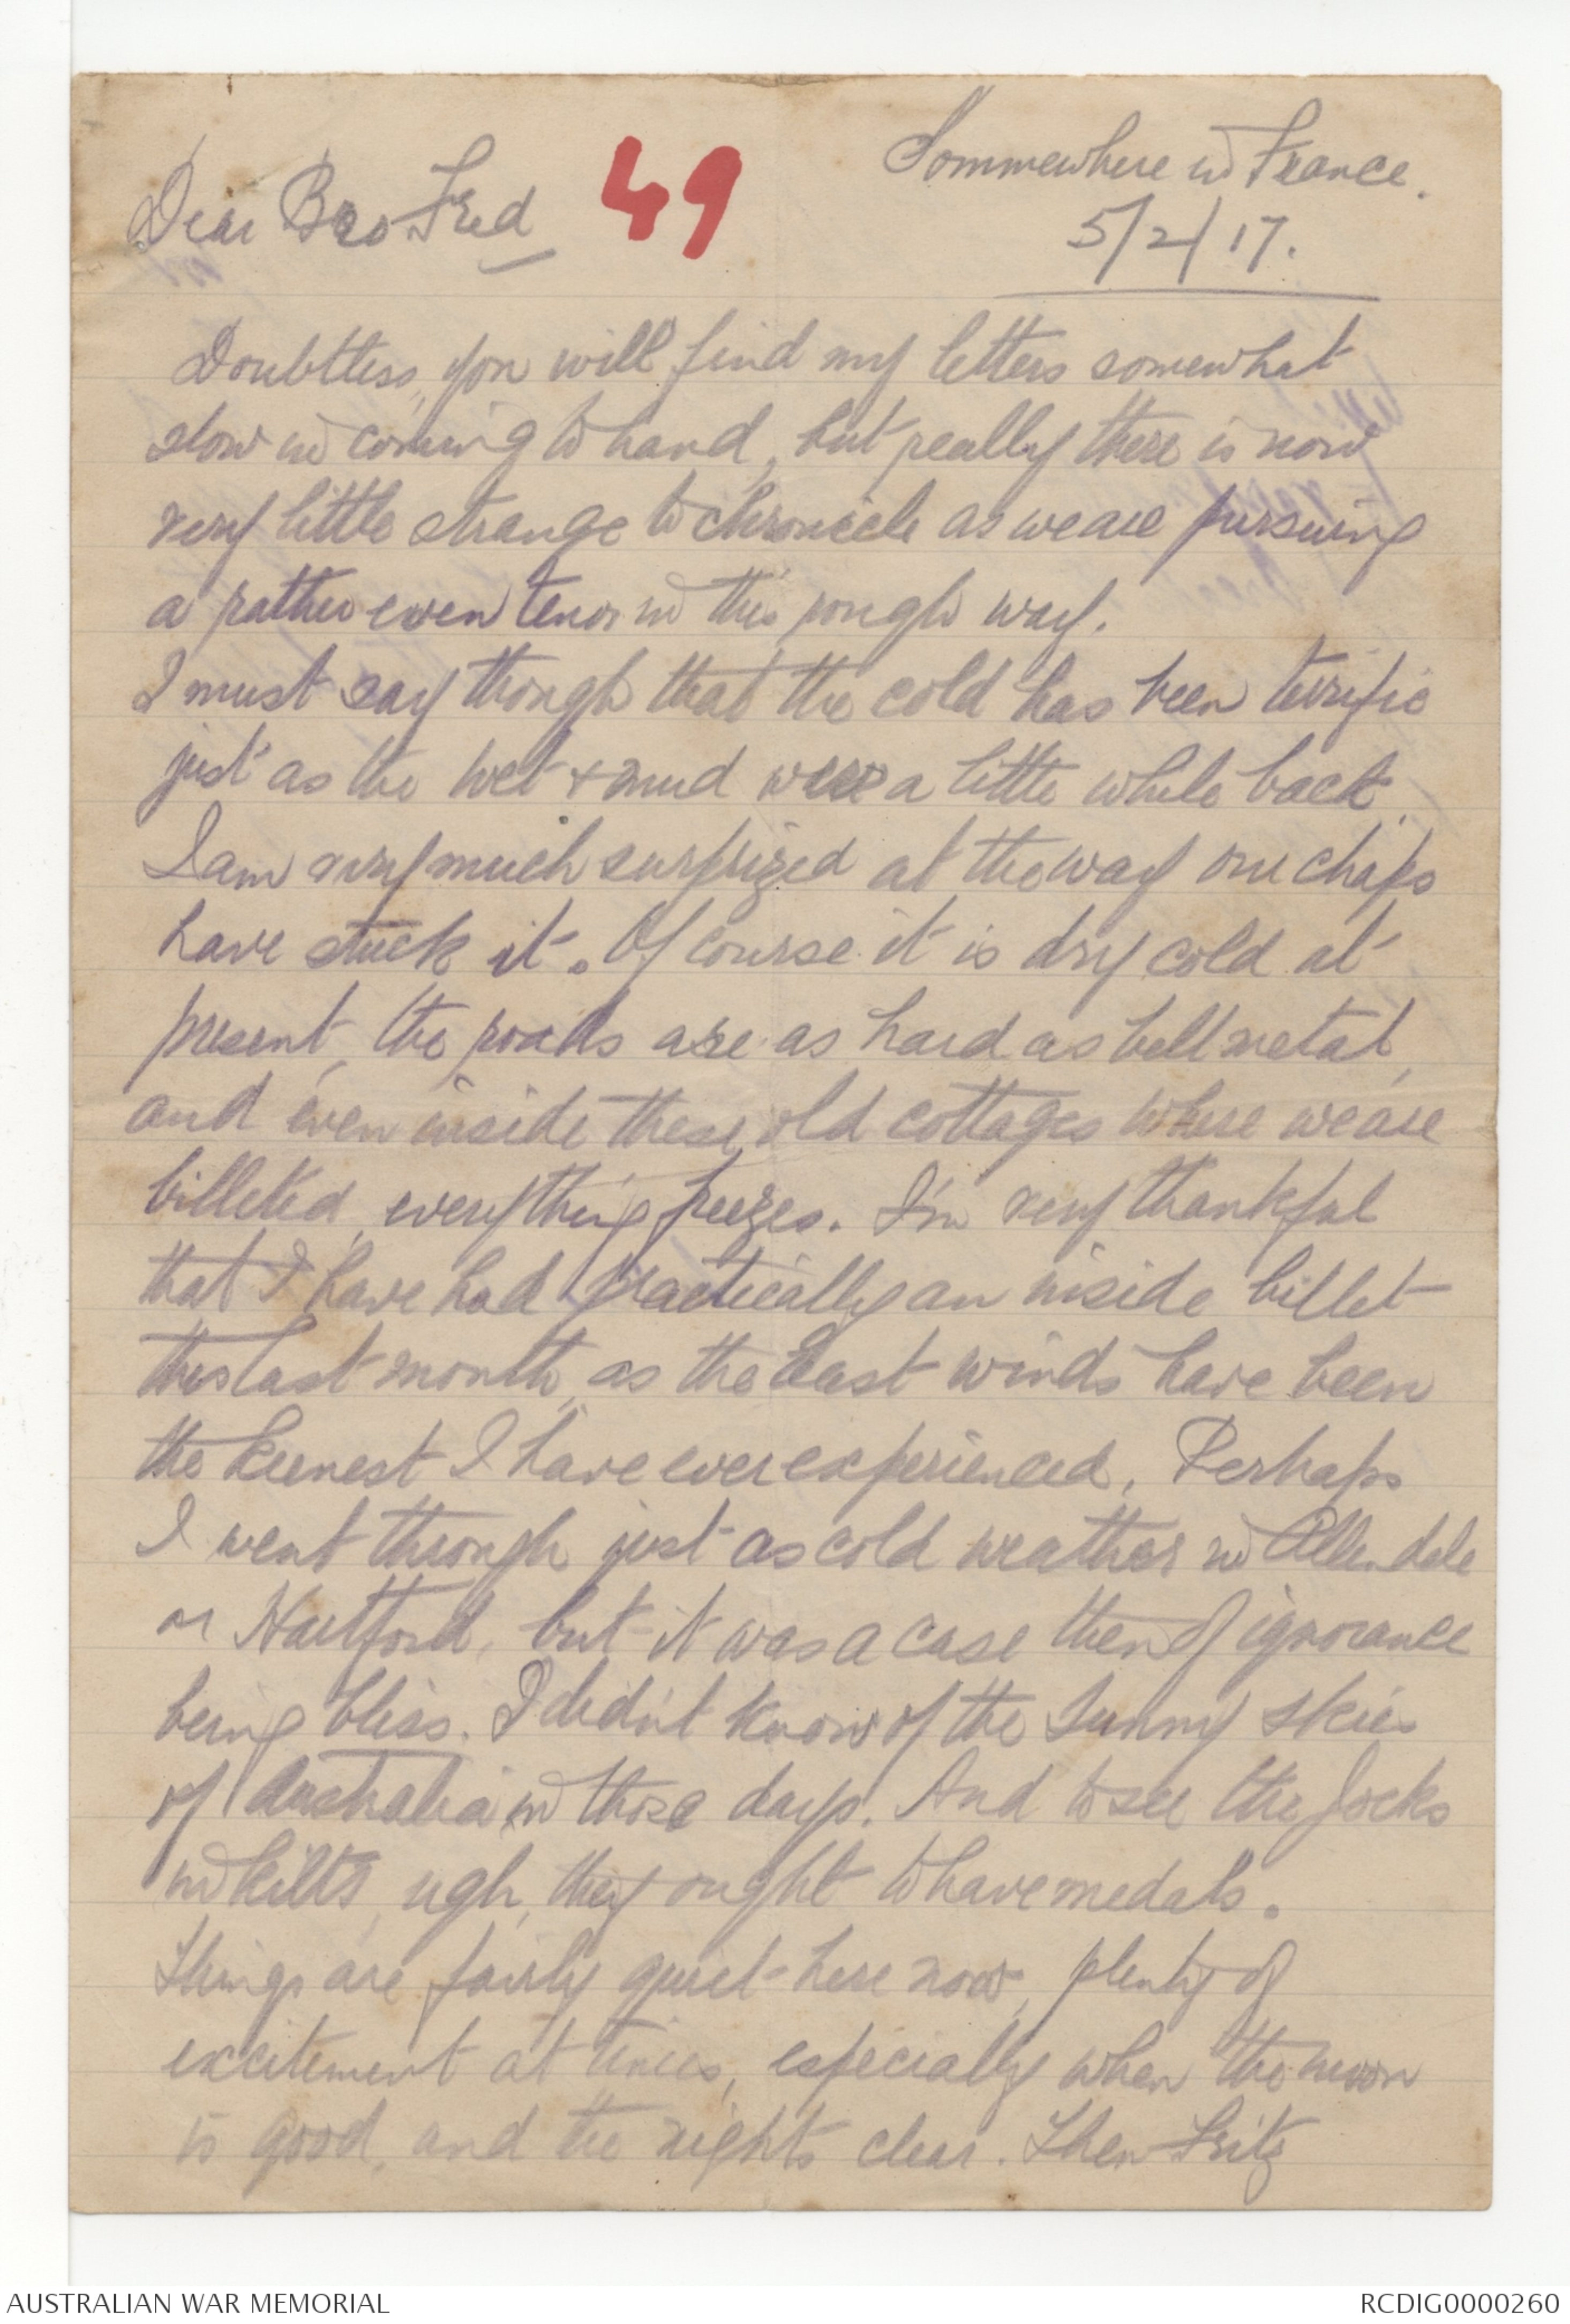 Sommewhere in France.
Dear Bro Fred 49
5/2/17.
Doubtless, you will find my letters somewhat
slow in coming to hand, but really there is now
very little strange to chronicle as we are pursuing
a rather even tenor in this rough way.
I must say though that the cold has been terrific
just as the wet & mud were a little while back.
I am very much surprized at the way our chaps
have stuck it. Of course it is dry cold at
present, the roads are as hard as bell metal,
and even inside these old cottages where we are
billeted, everything freezes. I'm very thankful
that I have had practically an inside billet
this last month, as the East winds have been
the keenest I have ever experienced. Perhaps
I went through just as cold weather in Allendale
or Hartford, but it was a case then of ignorance
being bliss. I didn't know of the Sunny skies
of Australia in those days. And to see the Jocks
in kilts, ugh, they ought to have medals.
Things are fairly quiet here now, plenty of
excitement at times, especially when the moon
is good, and the nights clear. Then Fritz
AUSTRALIAN WAR MEMORIAL
RCDIG0000260